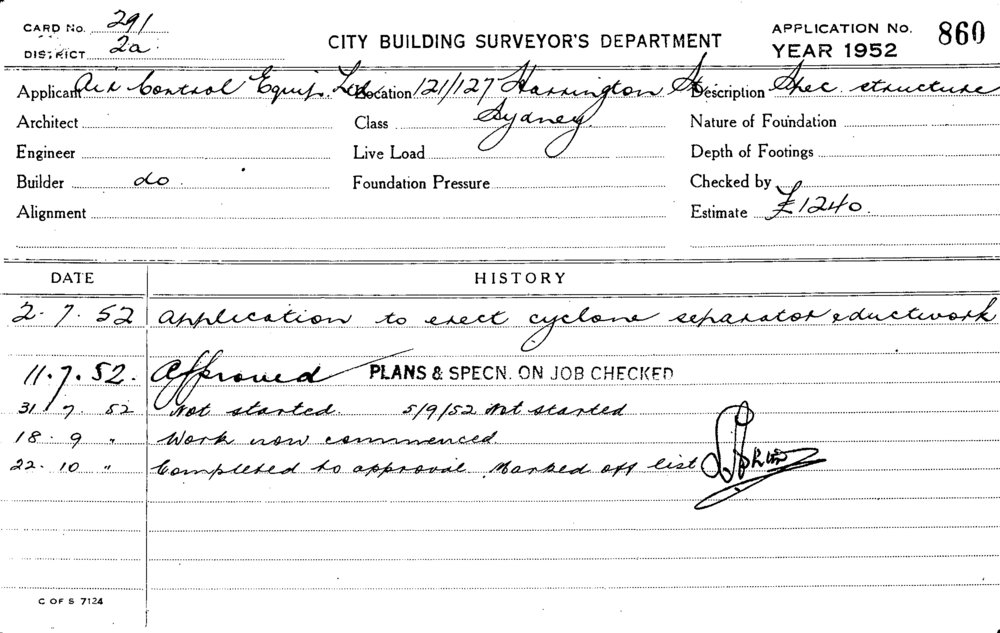 CARD No. 291
DISTRICT 2a
CITY BUILDING SURVEYOR'S DEPARTMENT
APPLICATION No. 860
YEAR 1952
Applicant Air Control Equip. Ltd. Location 121/127 Harrington St. Description Spec. structure
Architect Class Sydney. Nature of Foundation
Engineer Live Load Depth of Footings
Builder do. Foundation Pressure Checked by
Alignment Estimate £1240.
DATE HISTORY
2. 7. 52 Application to erect cyclone separator & ductwork
11. 7. 52. Approved PLANS & SPECN. ON JOB CHECKED
31 7 52 Not started. 5/9/52 Not started
18. 9 " Work now commenced
22. 10 " Completed to approval. Marked off list
C OF S 7124